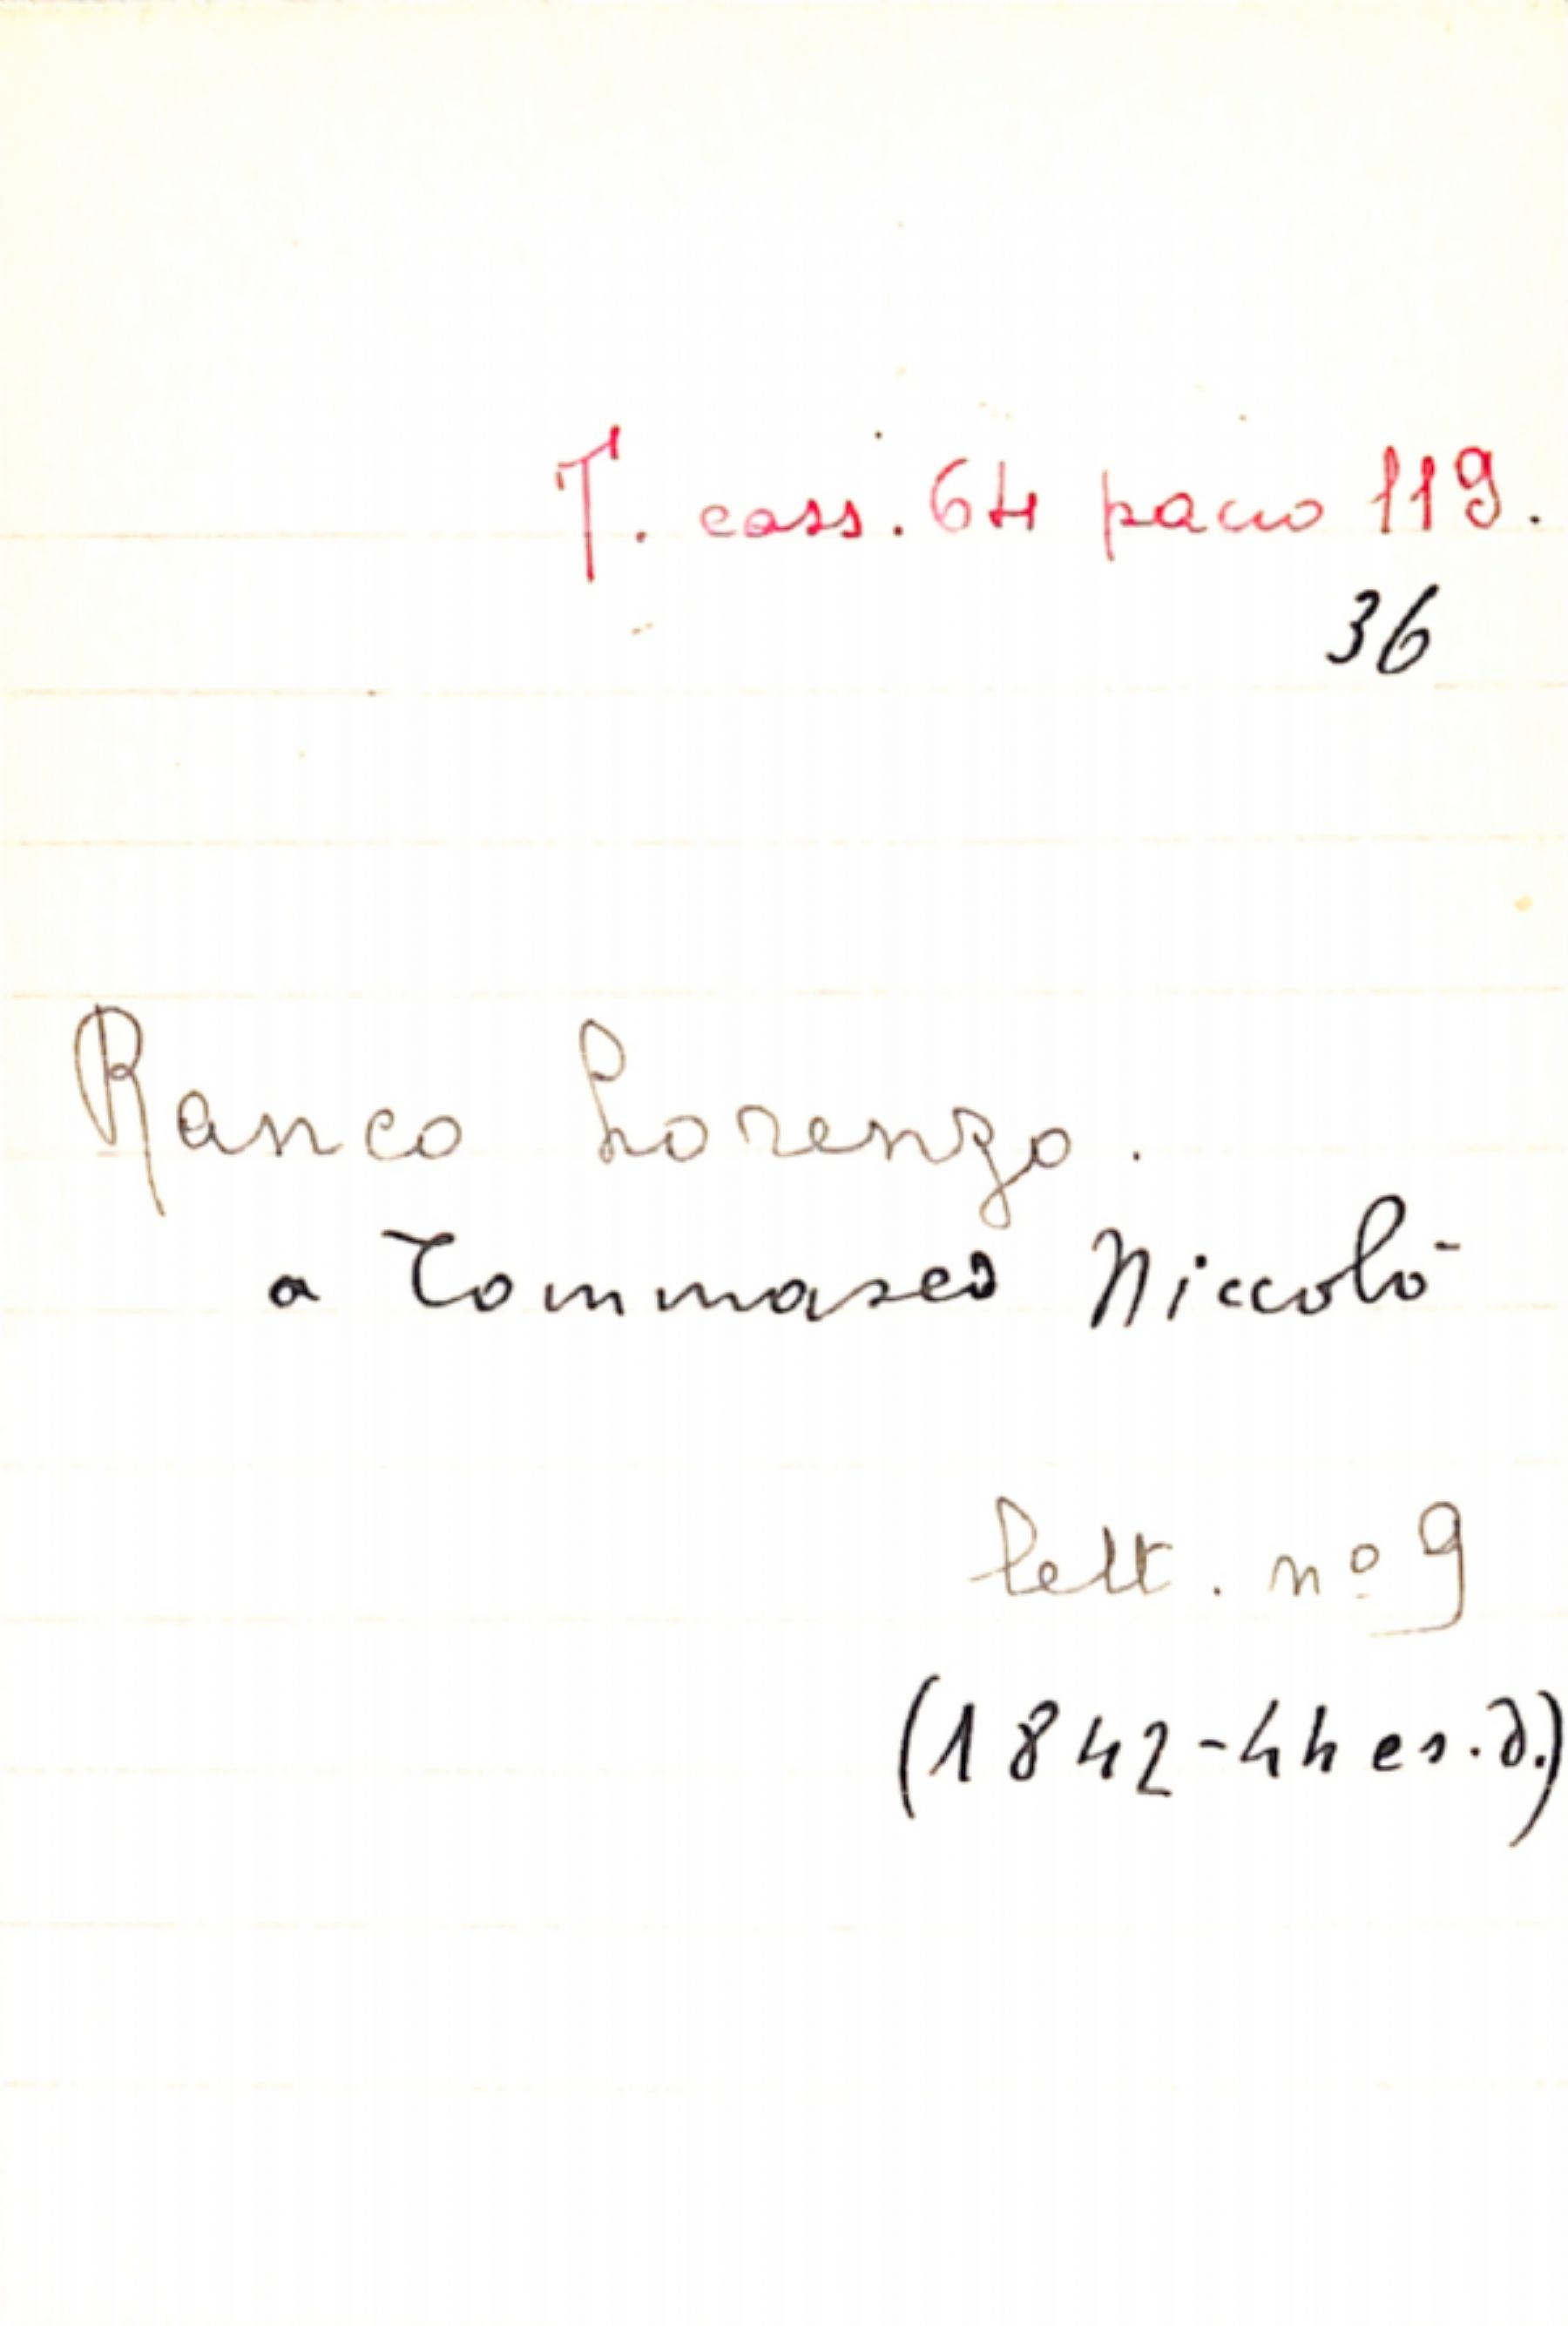 T. cass. 64 pacco 119.
36
Ranco Lorenzo.
a Tommaseo Niccolò
lett. nº 9
(1842-44 e s.d.)